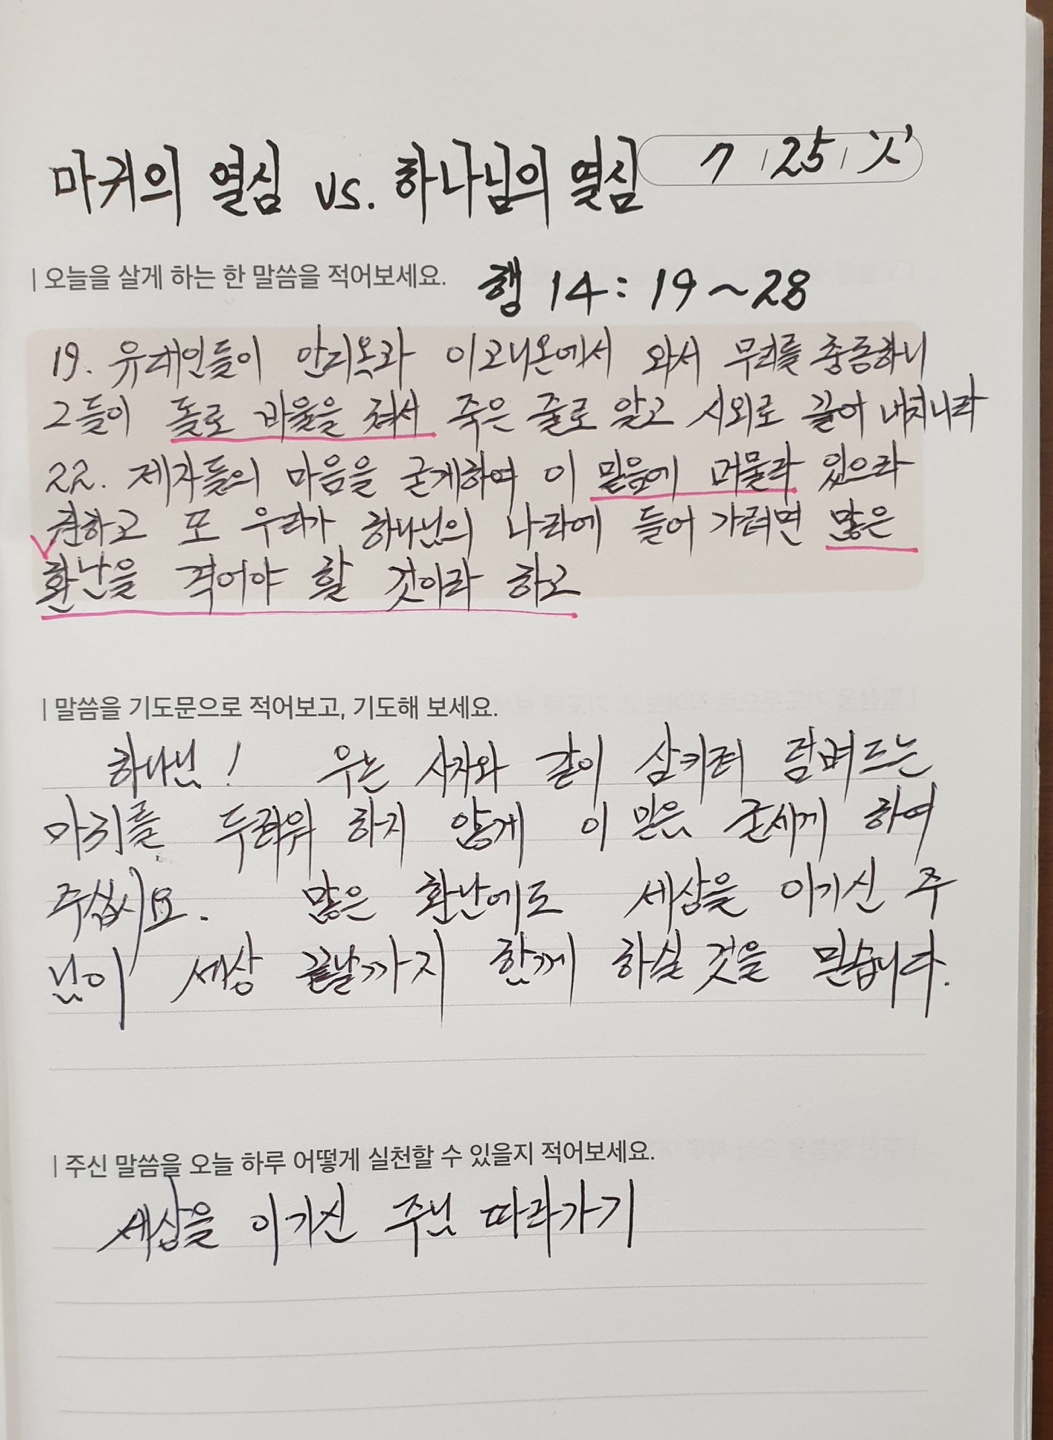 마귀의 열심 vs. 하나님의 열심 7/25/火
| 오늘을 살게 하는 한 말씀을 적어보세요. 행 14:19~28
19. 유대인들이 안디옥과 이고니온에서 와서 무리를 충동하니
그들이 돌로 바울을 쳐서 죽은 줄로 알고 시외로 끌어 내치니라
22. 제자들의 마음을 굳게하여 이 믿음에 머물라 있으라
권하고 또 우리가 하나님의 나라에 들어 가려면 많은
환난을 겪어야 할 것이라 하고
| 말씀을 기도문으로 적어보고, 기도해 보세요.
하나님! 우는 사자와 같이 삼키려 덤벼드는
마귀를 두려워 하지 않게 이 믿음 굳세게 하여
주십시요. 많은 환난에도 세상을 이기신 주
님이 세상 끝날까지 함께 하실 것을 믿습니다.
| 주신 말씀을 오늘 하루 어떻게 실천할 수 있을지 적어보세요.
세상을 이기신 주님 따라가기